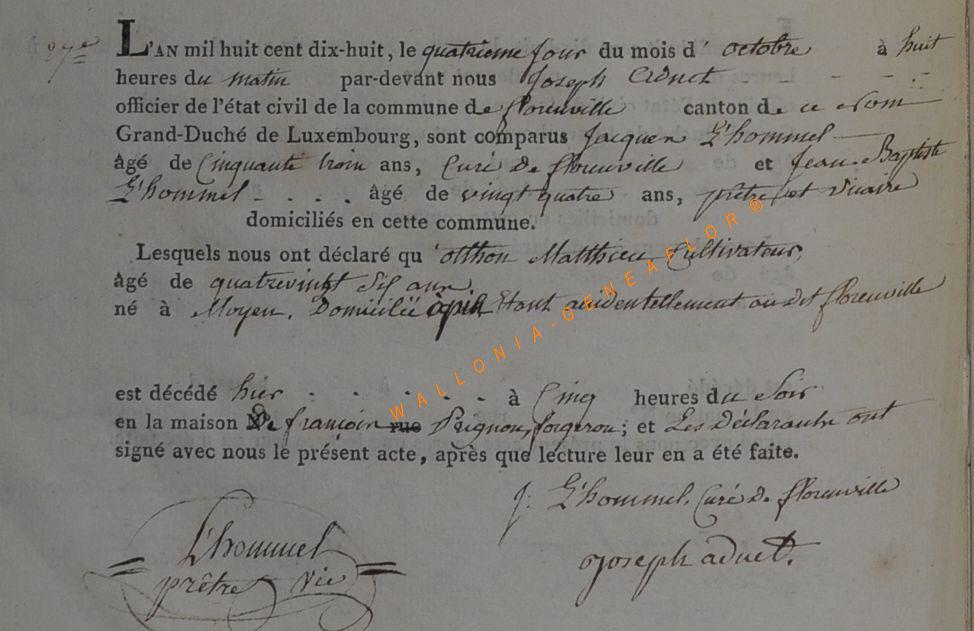 27e
L'AN mil huit cent dix-huit, le quatrieme jour du mois d' octobre à huit
heures du matin par-devant nous Joseph Adnet
officier de l'état civil de la commune de florenville canton de ce Nom
Grand-Duché de Luxembourg, sont comparus Jacques L'hommel
âgé de Cinquante trois ans, Curé de florenville et Jean-Baptiste
L'hommel âgé de vingt quatre ans, prêtre et vicaire
domiciliés en cette commune.
Lesquels nous ont déclaré qu'otthon Matthieu Cultivateur,
âgé de quatrevingt Six ans.
né à Moyen, Domicilié Etant accidentellement au dit florenville
est décédé hier à Cinq heures du Soir
en la maison De francois rue Perignon, forgeron; et Les Déclarants ont
signé avec nous le présent acte, après que lecture leur en a été faite.
J: L'hommel. Curé de florenville
L'hommel
prêtre vic
Joseph adnet.
WALLONIA-GENEAFLOR ®